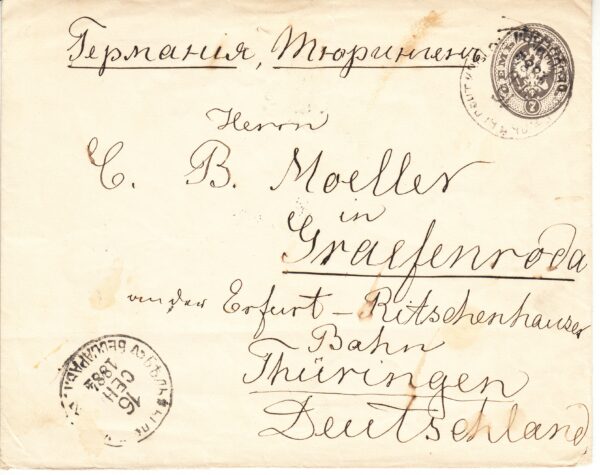 Германия, Тюрингенъ
Herrn
C. B. Moeller
in
Graefenroda
an der Erfurt – Ritschenhauser
Bahn
Thüringen
Deutschland
7
БЕССАРАБ.
16
СЕН
1884